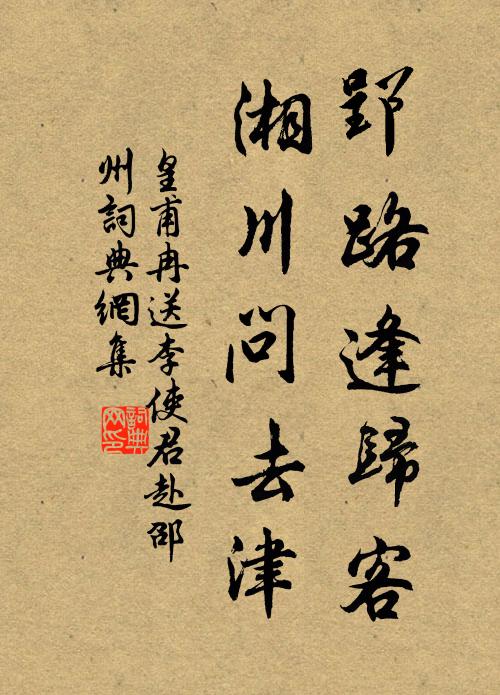 郢路逢歸客
湘川問去津
皇甫冉送李使君赴邵
州詞典網集
詞典
网印